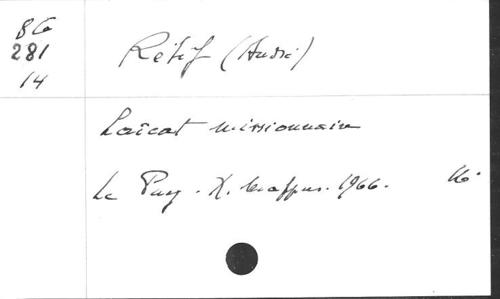 8 G
281
14
Rétif (André)
Laïcat missionnaire
Le Puy. X. Mappus. 1966.